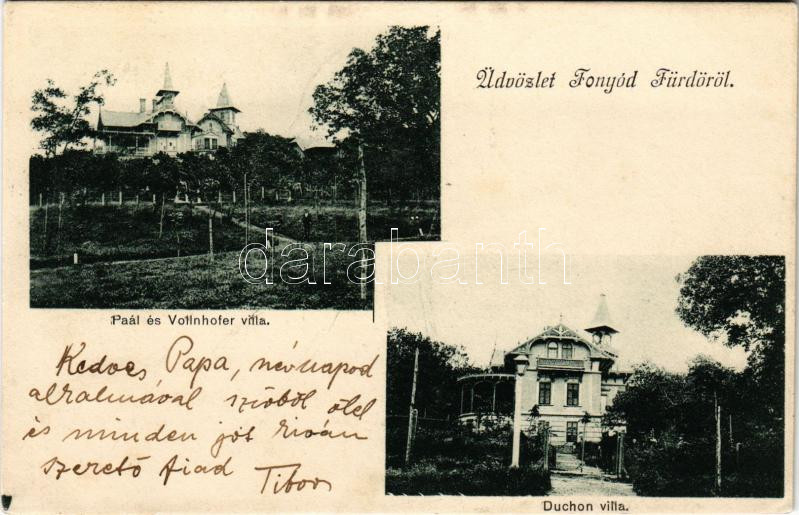 Üdvözlet Fonyód Fürdöröl.
Paál és Vollnhofer villa.
Kedves Papa, névnapod
alkalmával szivből ölel
és minden jót kiván
szerető fiad
Tibor
darabanth
Duchon villa.